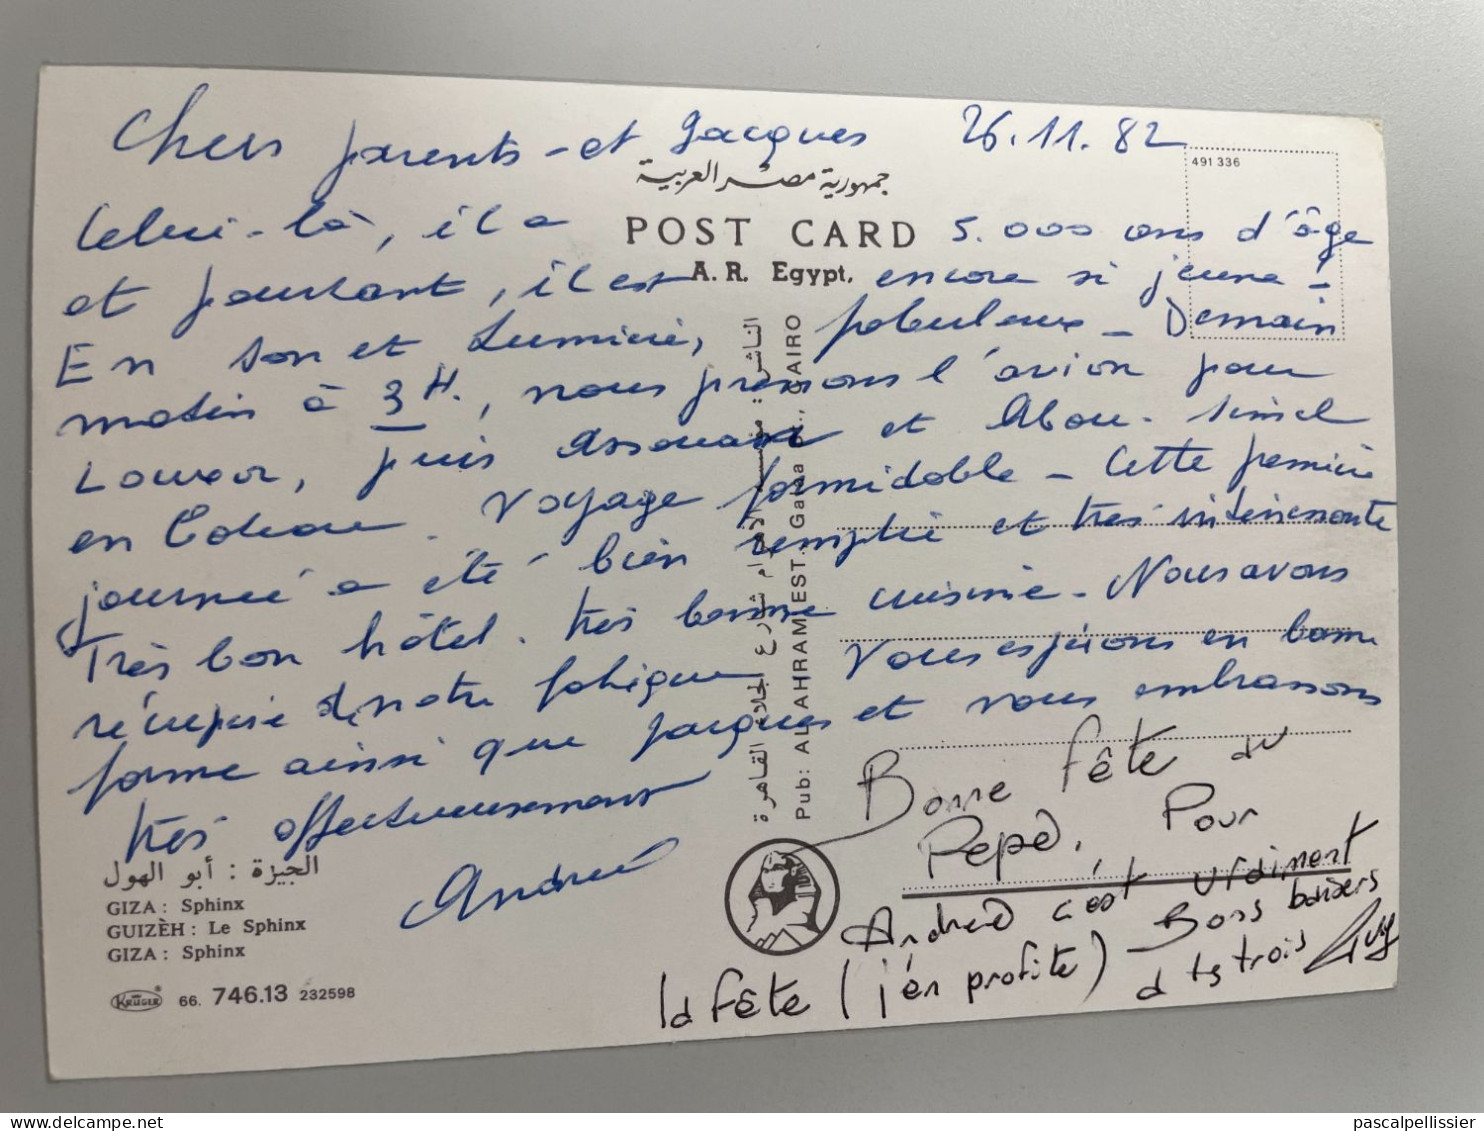 Chers parents - et Jacques 26.11.82
491 336
جمهورية مصر العربية
POST CARD
A. R. Egypt.
Celui-là, il a 5.000 ans d'âge
et pourtant, il est encore si jeune -
En son et Lumière, fabuleux - Demain
matin à 3H., nous prenons l'avion pour
Louxor, puis Assouan et Abou-Simbel
en Voyage formidable - Cette première
journée a été bien remplie et très intéressante
Très bon hôtel. très bonne cuisine - Nous avons
récupéré de notre fatigue Vous espérons en bonne
forme ainsi que Jacques et vous embrassons
très affectueusement
Andrée
Pub: AL AHRAM EST. Galaa CAIRO
Bonne fête au
Pépé. Pour
Andrée c'est vraiment
la fête (j'en profite) - Bons baisers
à ts trois Guy
الجيزة : أبو الهول
GIZA : Sphinx
GUIZÈH : Le Sphinx
GIZA : Sphinx
KRÜGER 66. 746.13 232598
pascalpellissier